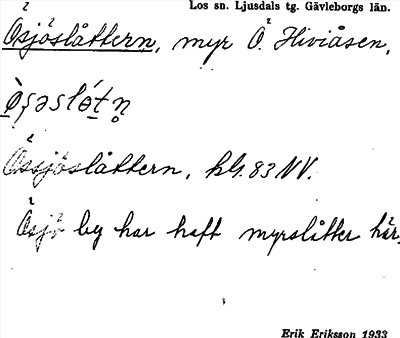 Los sn. Ljusdals tg. Gävleborgs län.
Åsjöslåttern, myr Ö. Hiviåsen.
Åssjöslåttern, kbl. 83 NV.
Åsjö by har haft myrslåtter här.
Erik Eriksson 1933